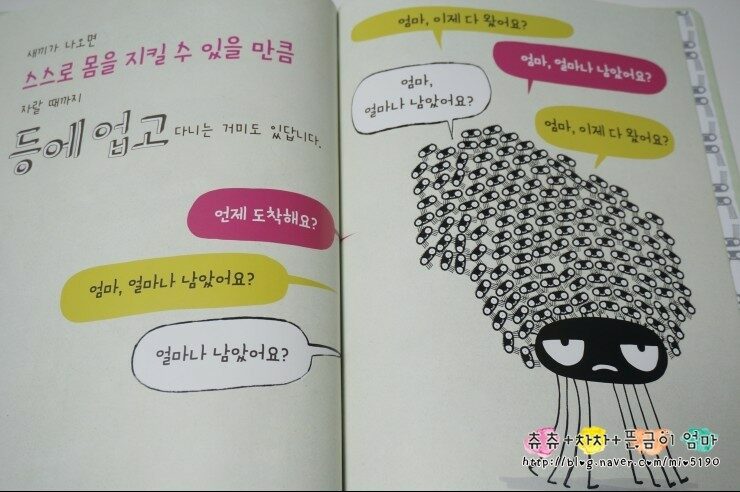 새끼가 나오면
스스로 몸을 지킬 수 있을 만큼
자랄 때까지
등에 업고 다니는 거미도 있답니다.
언제 도착해요?
엄마, 얼마나 남았어요?
얼마나 남았어요?
엄마, 이제 다 왔어요?
엄마, 얼마나 남았어요?
엄마,
얼마나 남았어요?
엄마, 이제 다 왔어요?
츄츄+차차+뜬금이 엄마
http://blog.naver.com/mio5190